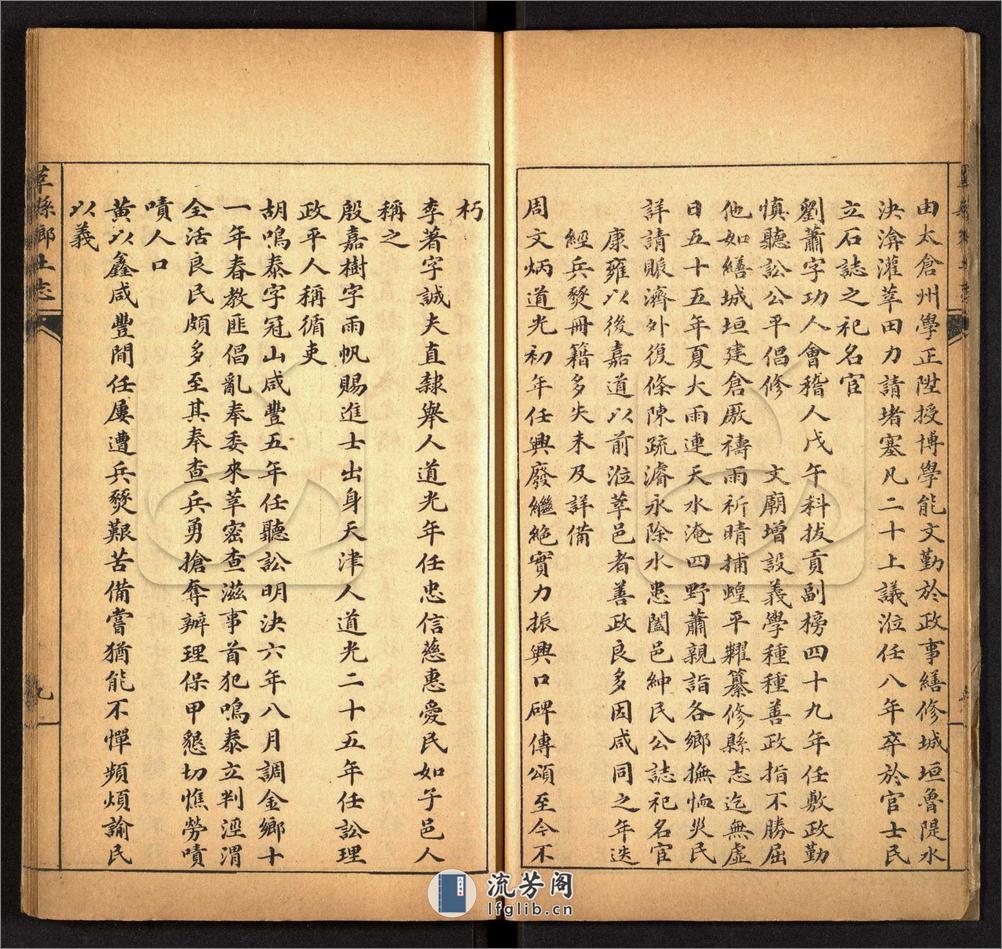 由太倉州學正陞授博學能文勤於政事繕修城垣魯隄水
決渰灌莘田力請堵塞凡二十上議涖任八年卒於官士民
立石誌之祀名宦
劉蕭字功人會稽人戊午科拔貢副榜四十九年任敷政勤
慎聽訟公平倡修　文廟增設義學種種善政指不勝屈
他如繕城垣建倉厫禱雨祈晴捕蝗平糶纂修縣志迄無虛
日五十五年夏大雨連天水淹四野蕭親詣各鄉撫恤災民
詳請賑濟外復條陳疏濬永除水患闔邑紳民公誌祀名宦
康雍以後嘉道以前涖莘邑者善政良多因咸同之年迭
經兵燹冊籍多失未及詳備
周文炳道光初年任興廢繼絕實力振興口碑傳頌至今不
朽
李著字誠夫直隸舉人道光年任忠信慈惠愛民如子邑人
稱之
殷嘉樹字雨帆賜進士出身天津人道光二十五年任訟理
政平人稱循吏
胡鳴泰字冠山咸豐五年任聽訟明決六年八月調金鄉十
一年春教匪倡亂奉委來莘密查滋事首犯鳴泰立判涇渭
全活良民頗多至其奉查兵勇搶奪辦理保甲懇切憔勞嘖
嘖人口
黃以鑫咸豐間任屢遭兵燹艱苦備嘗猶能不憚頻煩諭民
以義
莘縣鄉土志
九
流芳阁
lfglib.cn